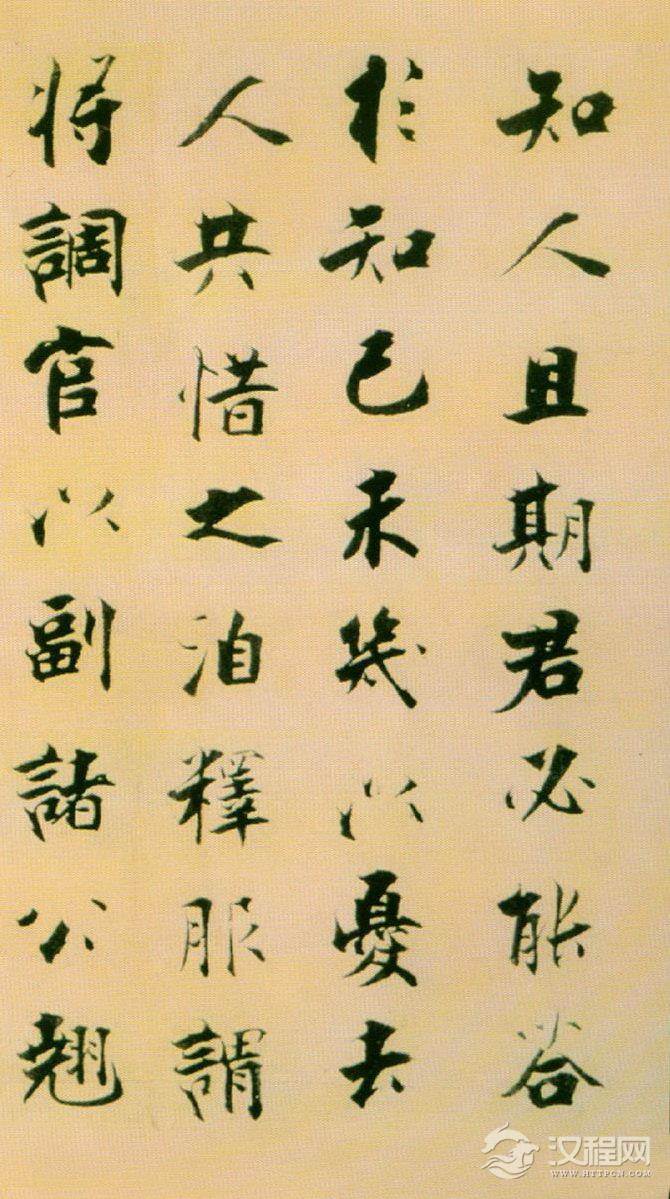 知人且期君必能答
於知己未幾以憂去
人共惜之洎釋服謂
将調官以副諸公翹
汉程网
WWW.HTTPCN.COM